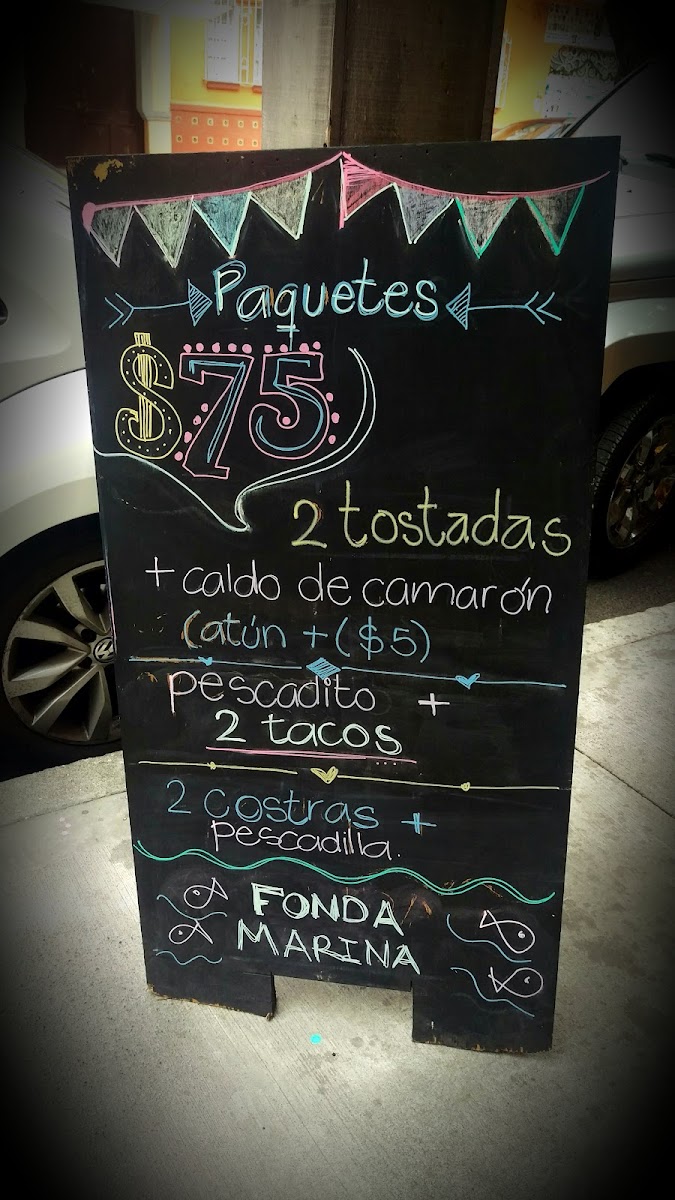 Paquetes
$75
2 tostadas
+ caldo de camarón
(atún + ($5)
pescadito +
2 tacos
2 costras +
pescadilla.
FONDA
MARINA